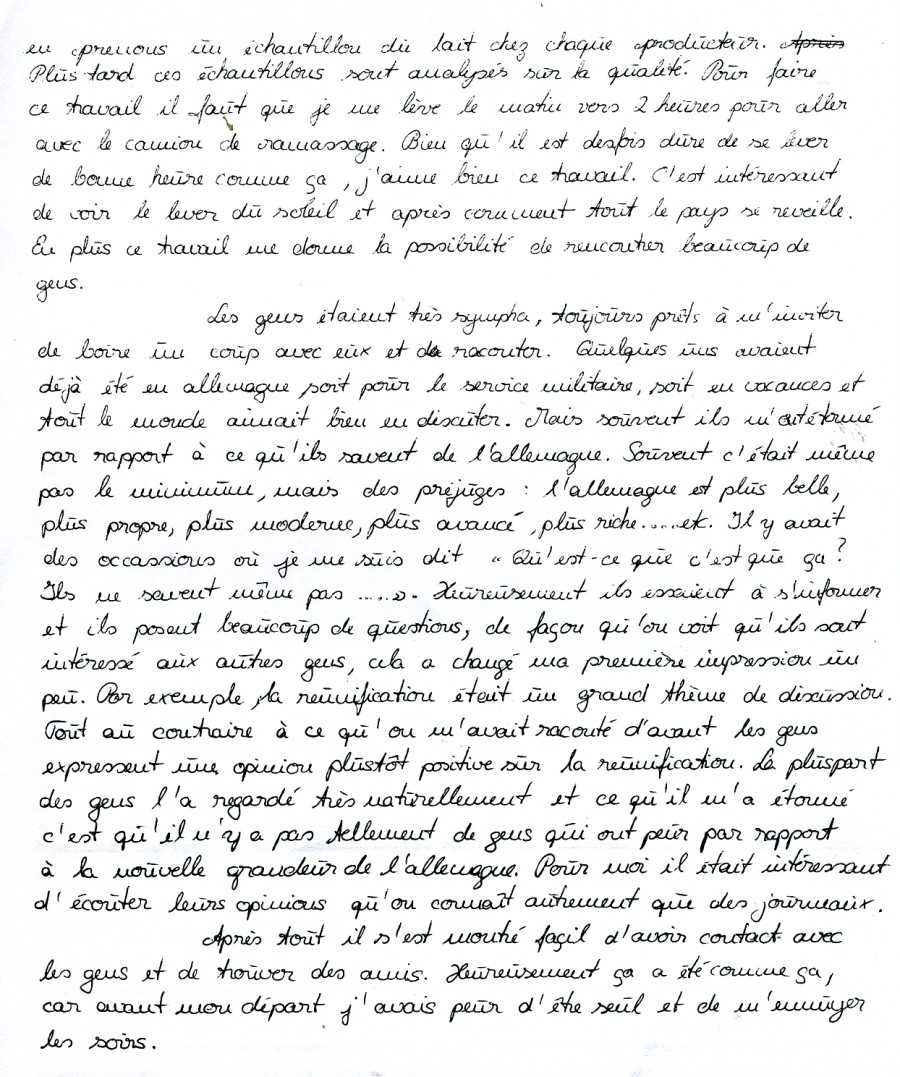 en prenous un échantillon du lait chez chaque producteur. Après
Plus tard ces échantillons sont analysés sur la qualité. Pour faire
ce travail il faut que je me lève le matin vers 2 heures pour aller
avec le camion de ramassage. Bien qu'il est desfois dure de se lever
de bonne heure comme ça, j'aime bien ce travail. C'est intéressant
de voir le lever du soleil et après comment tout le pays se reveille.
En plus ce travail me donne la possibilité de rencontrer beaucoup de
gens.
Les gens étaient très sympha, toujours prêts à m'inviter
de boire un coup avec eux et de raconter. Quelques uns avaient
déjà été en allemagne soit pour le service militaire, soit en vacances et
tout le monde aimait bien en discuter. Mais souvent ils m'ont étonné
par rapport à ce qu'ils savent de l'allemagne. Souvent c'était même
pas le minimum, mais des préjuges : l'allemagne est plus belle,
plus propre, plus moderne, plus avancé, plus riche.....etc. Il y avait
des occassions où je me suis dit « Qu'est-ce que c'est que ça ?
Ils ne savent même pas .....». Heureusement ils essaient à s'informer
et ils posent beaucoup de questions, de façon qu'on voit qu'ils sont
intéressé aux autres gens, cela a changé ma première impression un
peu. Par exemple, la reunification était un grand thème de discussion.
Tout au contraire à ce qu'on m'avait raconté d'avant les gens
expressent une opinion plustôt positive sur la reunification. La pluspart
des gens l'a regardé très naturellement et ce qu'il m'a étonné
c'est qu'il n'y a pas tellement de gens qui ont peur par rapport
à la nouvelle grandeur de l'allemagne. Pour moi il était intéressant
d'écouter leurs opinions qu'on connaît autrement que des journeaux.
Après tout il s'est montré façil d'avoir contact avec
les gens et de trouver des amis. Heureusement ça a été comme ça,
car avant mon départ j'avais peur d'être seul et de m'ennuyer
les soirs.